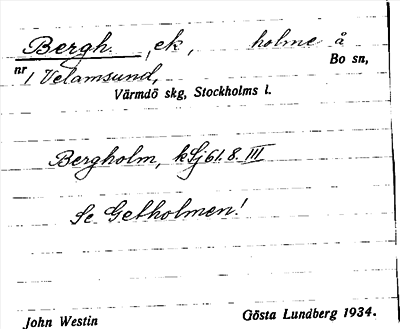 Bergh. , ek, holme å
nr 1 Velamsund, Bo sn,
Värmdö skg, Stockholms l.
Bergholm, kSj 61.8.III
Se Getholmen!
John Westin Gösta Lundberg 1934.